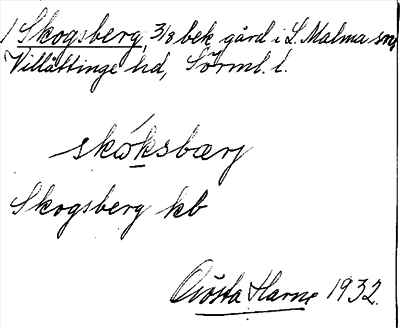 1 Skogsberg, 3/8 bek gård i L. Malma sn,
Villåttinge hd, Sörml. l.
skóksbærj
Skogsberg kb
Gösta Harne 1932.